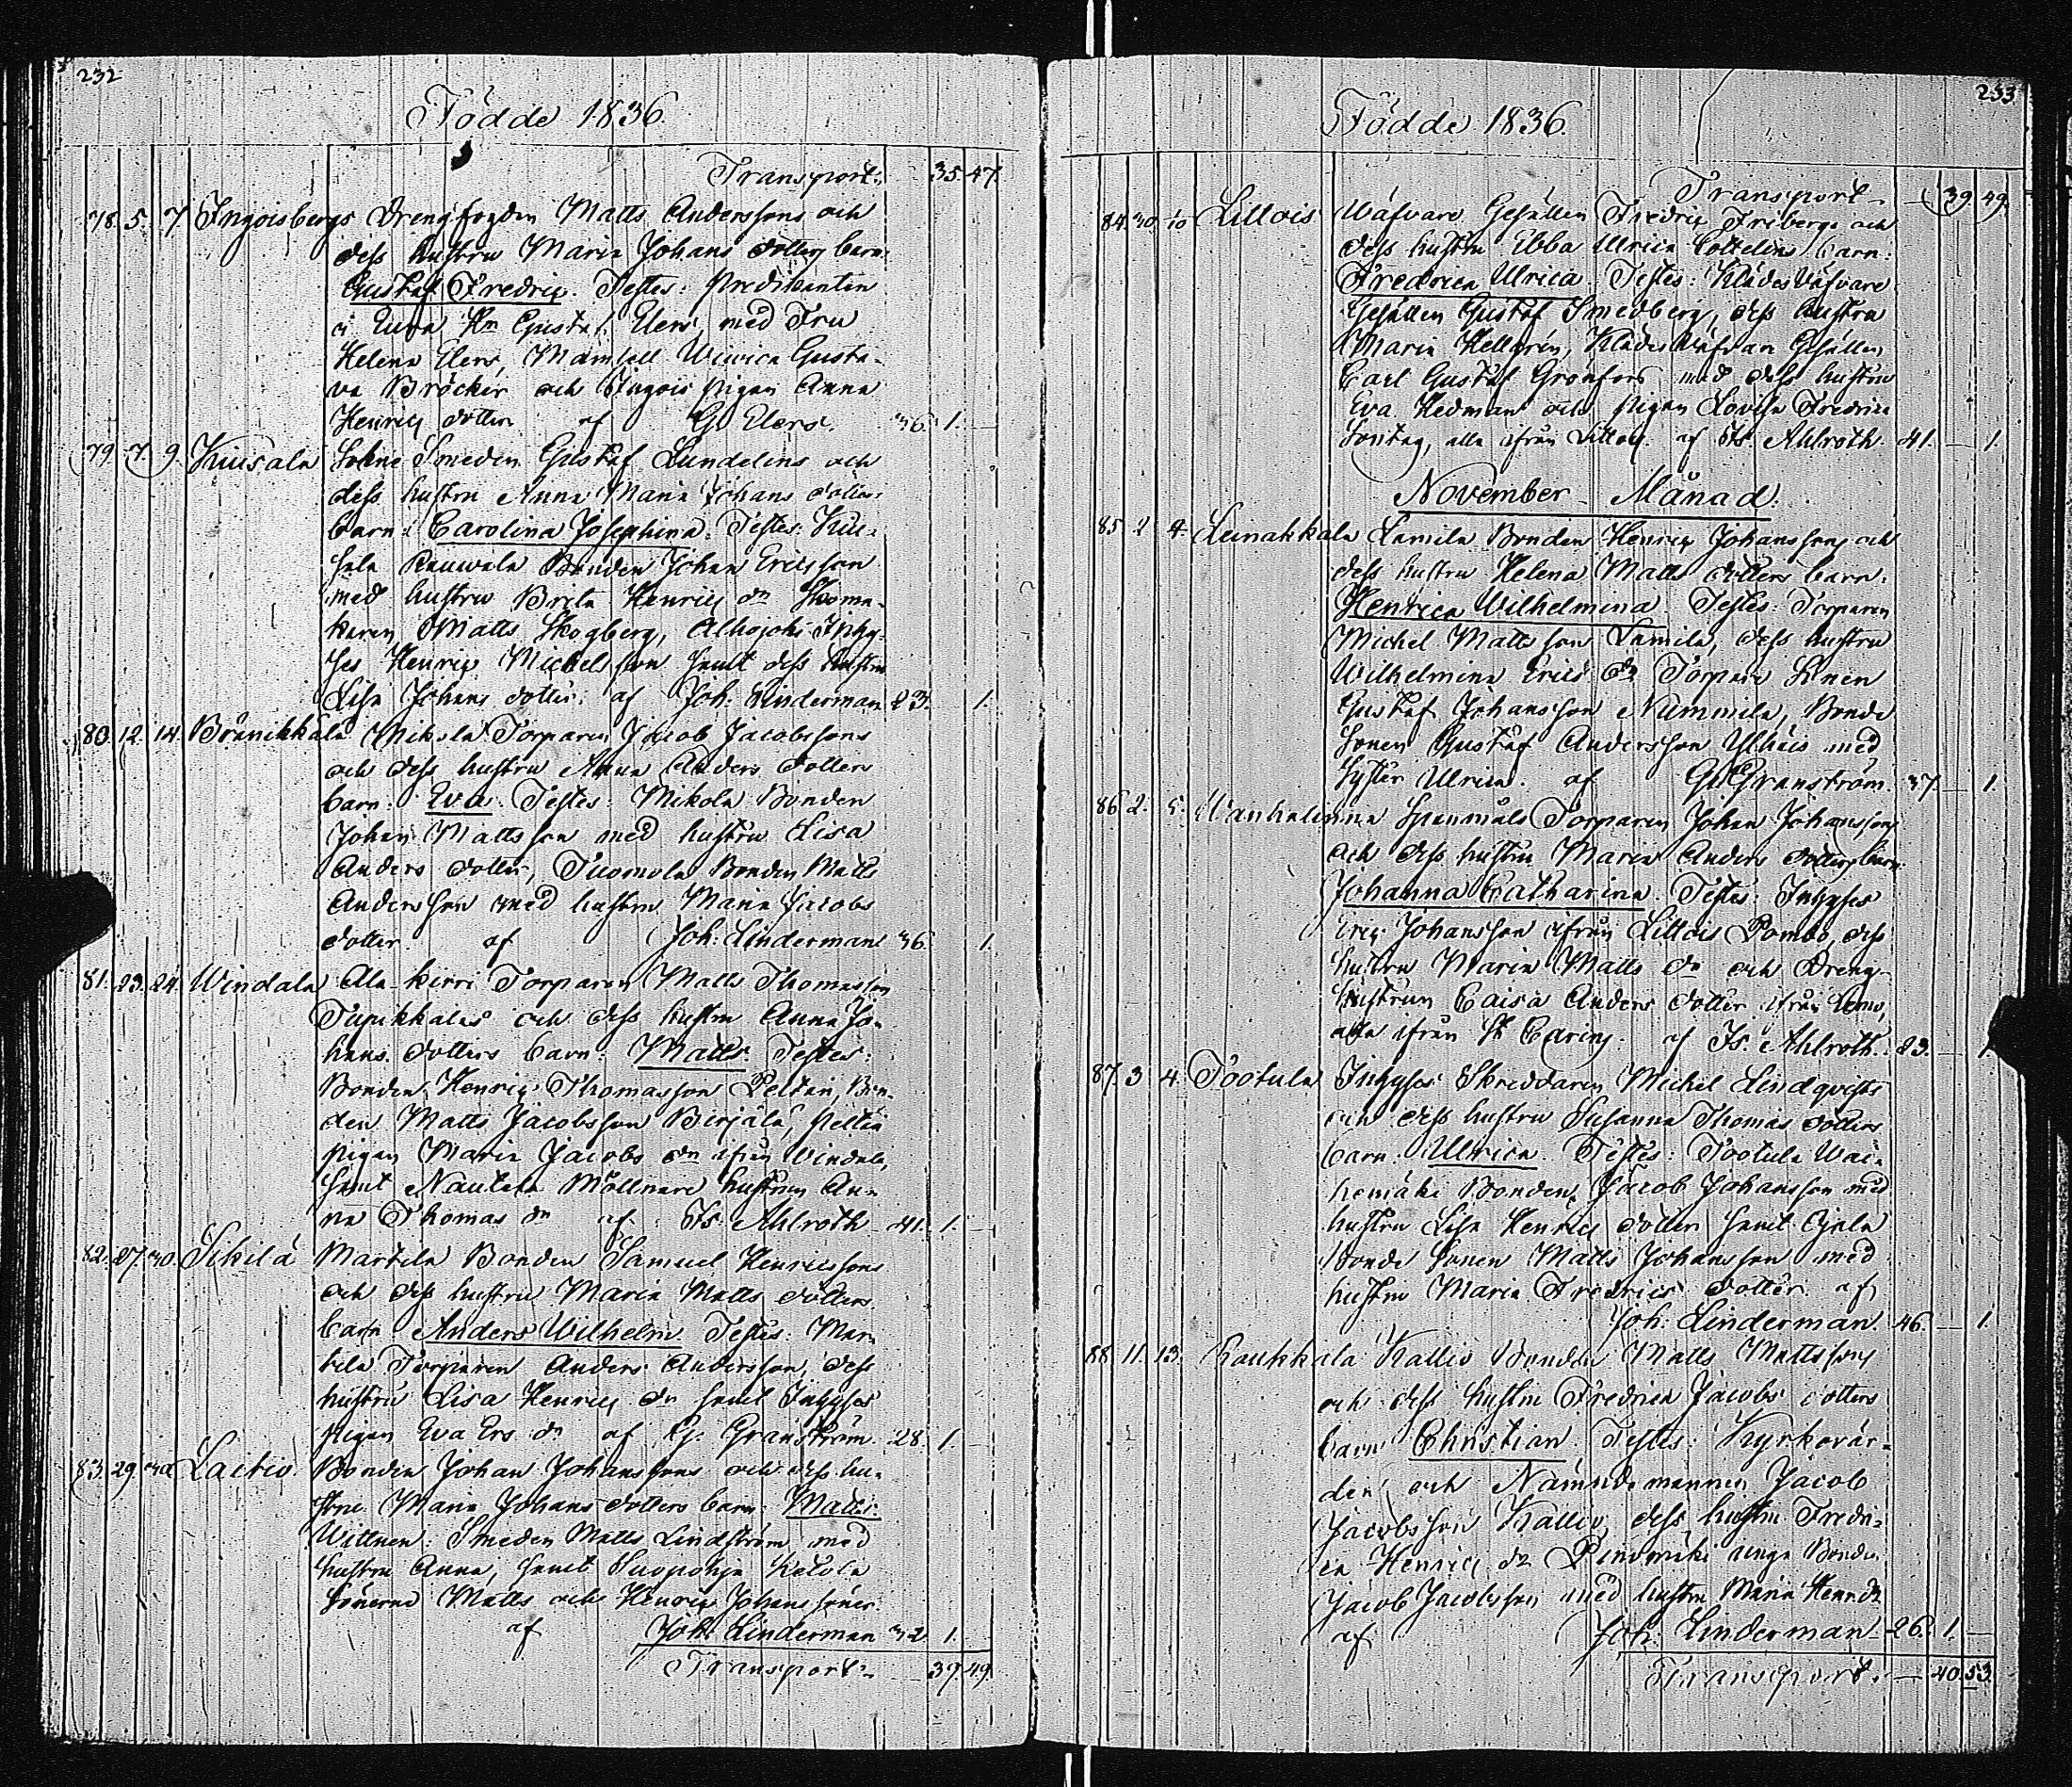 232
Födde 1836.
Transport: 35. 47.
78. 5. 7. Ingoisbergs Drengfogden Matts Anderssons och
dess hustru Maria Johans dotters barn:
Gustaf Fredric. Testes: Predikanten
i Hr Gustaf Elers, med Fru
Helena Elers, Mamsell Wivica Gusta-
va Bröcker och Pigan Anna
Henrics dotter af G. Elers. 36. 1. —
79. 7. 9. Kuusala Sohne Smeden Gustaf Lundelins och
dess hustru Anna Maria Johans dotters
barn: Carolina Josephina. Testes: Kuu-
sala Rauwala Bonden Johan Ericsson
med hustru Brita Henrics dr Skoma-
karen Matts Skogberg, Alhojoki Inhy-
ses Henric Michelsson samt dess hustru
Lisa Johans dotter. af Joh: Linderman 23. 1.
80. 12. 14. Brånikkala Mikola Torparen Jacob Jacobssons
och dess hustru Anna Anders dotters
barn: Eva. Testes: Mikola Bonden
Johan Mattsson med hustru Lisa
Anders dotter, Tuomola Bonden Matts
Andersson med hustru Maria Jacobs
dotter af Joh: Linderman 36. 1.
81. 23. 24. Windala Ala-kirri Torparen Matts Thomasson
och dess hustru Anna Jo-
hans dotters barn: Matts. Testes:
Bonden Henric Thomasson Peltari, Bon-
den Matts Jacobsson Birjälä,
pigan Maria Jacobs dr ifrån Vindala,
samt Nautela Möllnare hustrun An-
na Thomas dr af Is. Ahlroth 41. 1. —
82. 27. 30. Sikilä Martila Bonden Samuel Henricssons
och dess hustru Maria Matts dotters
barn Anders Wilhelm. Testes: Mar-
tila Torparen Anders Andersson, dess
hustru Lisa Henrics dr samt Inhyses
Pigan Eva Ers dr af G. Granström. 28. 1. —
83. 29. 30. Laitio Bonden Johan Johanssons och dess hu-
stru Maria Johans dotters barn: Matts.
Wittnen: Smeden Matts Lindström med
hustru Anna, samt Suopohja Ketola
Sönerne Matts och Henric Johanssöner.
af Joh: Linderman 32. 1. —
Transport: — 39. 49.
233
Födde 1836.
Transport — 39. 49.
84. 30. 10 Lillois Wäfvare Gesällen Fredric Fribergs och
dess hustru Ebba Ulrica Cottelins barn:
Fredrica Ulrica. Testes: Klädes Väfvare
Gesällen Gustaf Smedberg, dess hustru
Maria Hellgrén, Klädes Väfvare Gesällen
Carl Gustaf Grönfors med dess hustru
Eva Hedman och pigan Lovisa Fredrica
Sontag, alla ifrån Lillois. af Is. Ahlroth 41. — 1.
November Månad.
85. 2. 4. Leinakkala Lamila Bonden Henric Johanssons och
dess hustru Helena Matts dotters barn:
Henrica Wilhelmina. Testes: Torparen
Michel Mattsson Lamila, dess hustru
Wilhelmina Erics dr Torpare Sonen
Gustaf Johansson Nummila, Bonde
Sonen Gustaf Andersson Ylhäis med
Syster Ulrica. af G. Granström. 37. — 1.
86. 2. 5. Wanhalinna Spannmåls Torparen Johan Johanssons
och dess hustru Maria Anders dotters barn:
Johanna Catharina. Testes: Inhyses
Eric Johansson ifrån Lillois Pombo, dess
hustru Maria Matts dr och Dreng-
hustrun Caisa Anders dotter ifrån Lemo,
alla ifrån St Carins. af Is. Ahlroth. 23. — 1.
87. 3. 4. Tootula Inhyses Skreddaren Michel Lindqvists
och dess hustru Susanna Thomas dotters
barn: Ulrica. Testes: Tootula Wai-
nomäki Bonden Jacob Johansson med
hustru Lisa Henrics dotter samt Ojala
Bonde Sonen Matts Johansson med
hustru Maria Fredrics dotter. af
Joh: Linderman. 46. — 1.
88. 11. 13. Raukkala Kallio Bonden Matts Mattssons
och dess hustru Fredrica Jacobs dotters
barn Christian. Testes: Kyrkovär-
den och Nämndemannen Jacob
Jacobsson Kallio, dess hustru Fredri-
ca Henrics dr unga Bonden
Jacob Jacobsson med hustru Maria Henr. dr
af Joh: Linderman. 26. 1. —
Transport. — 40. 53.